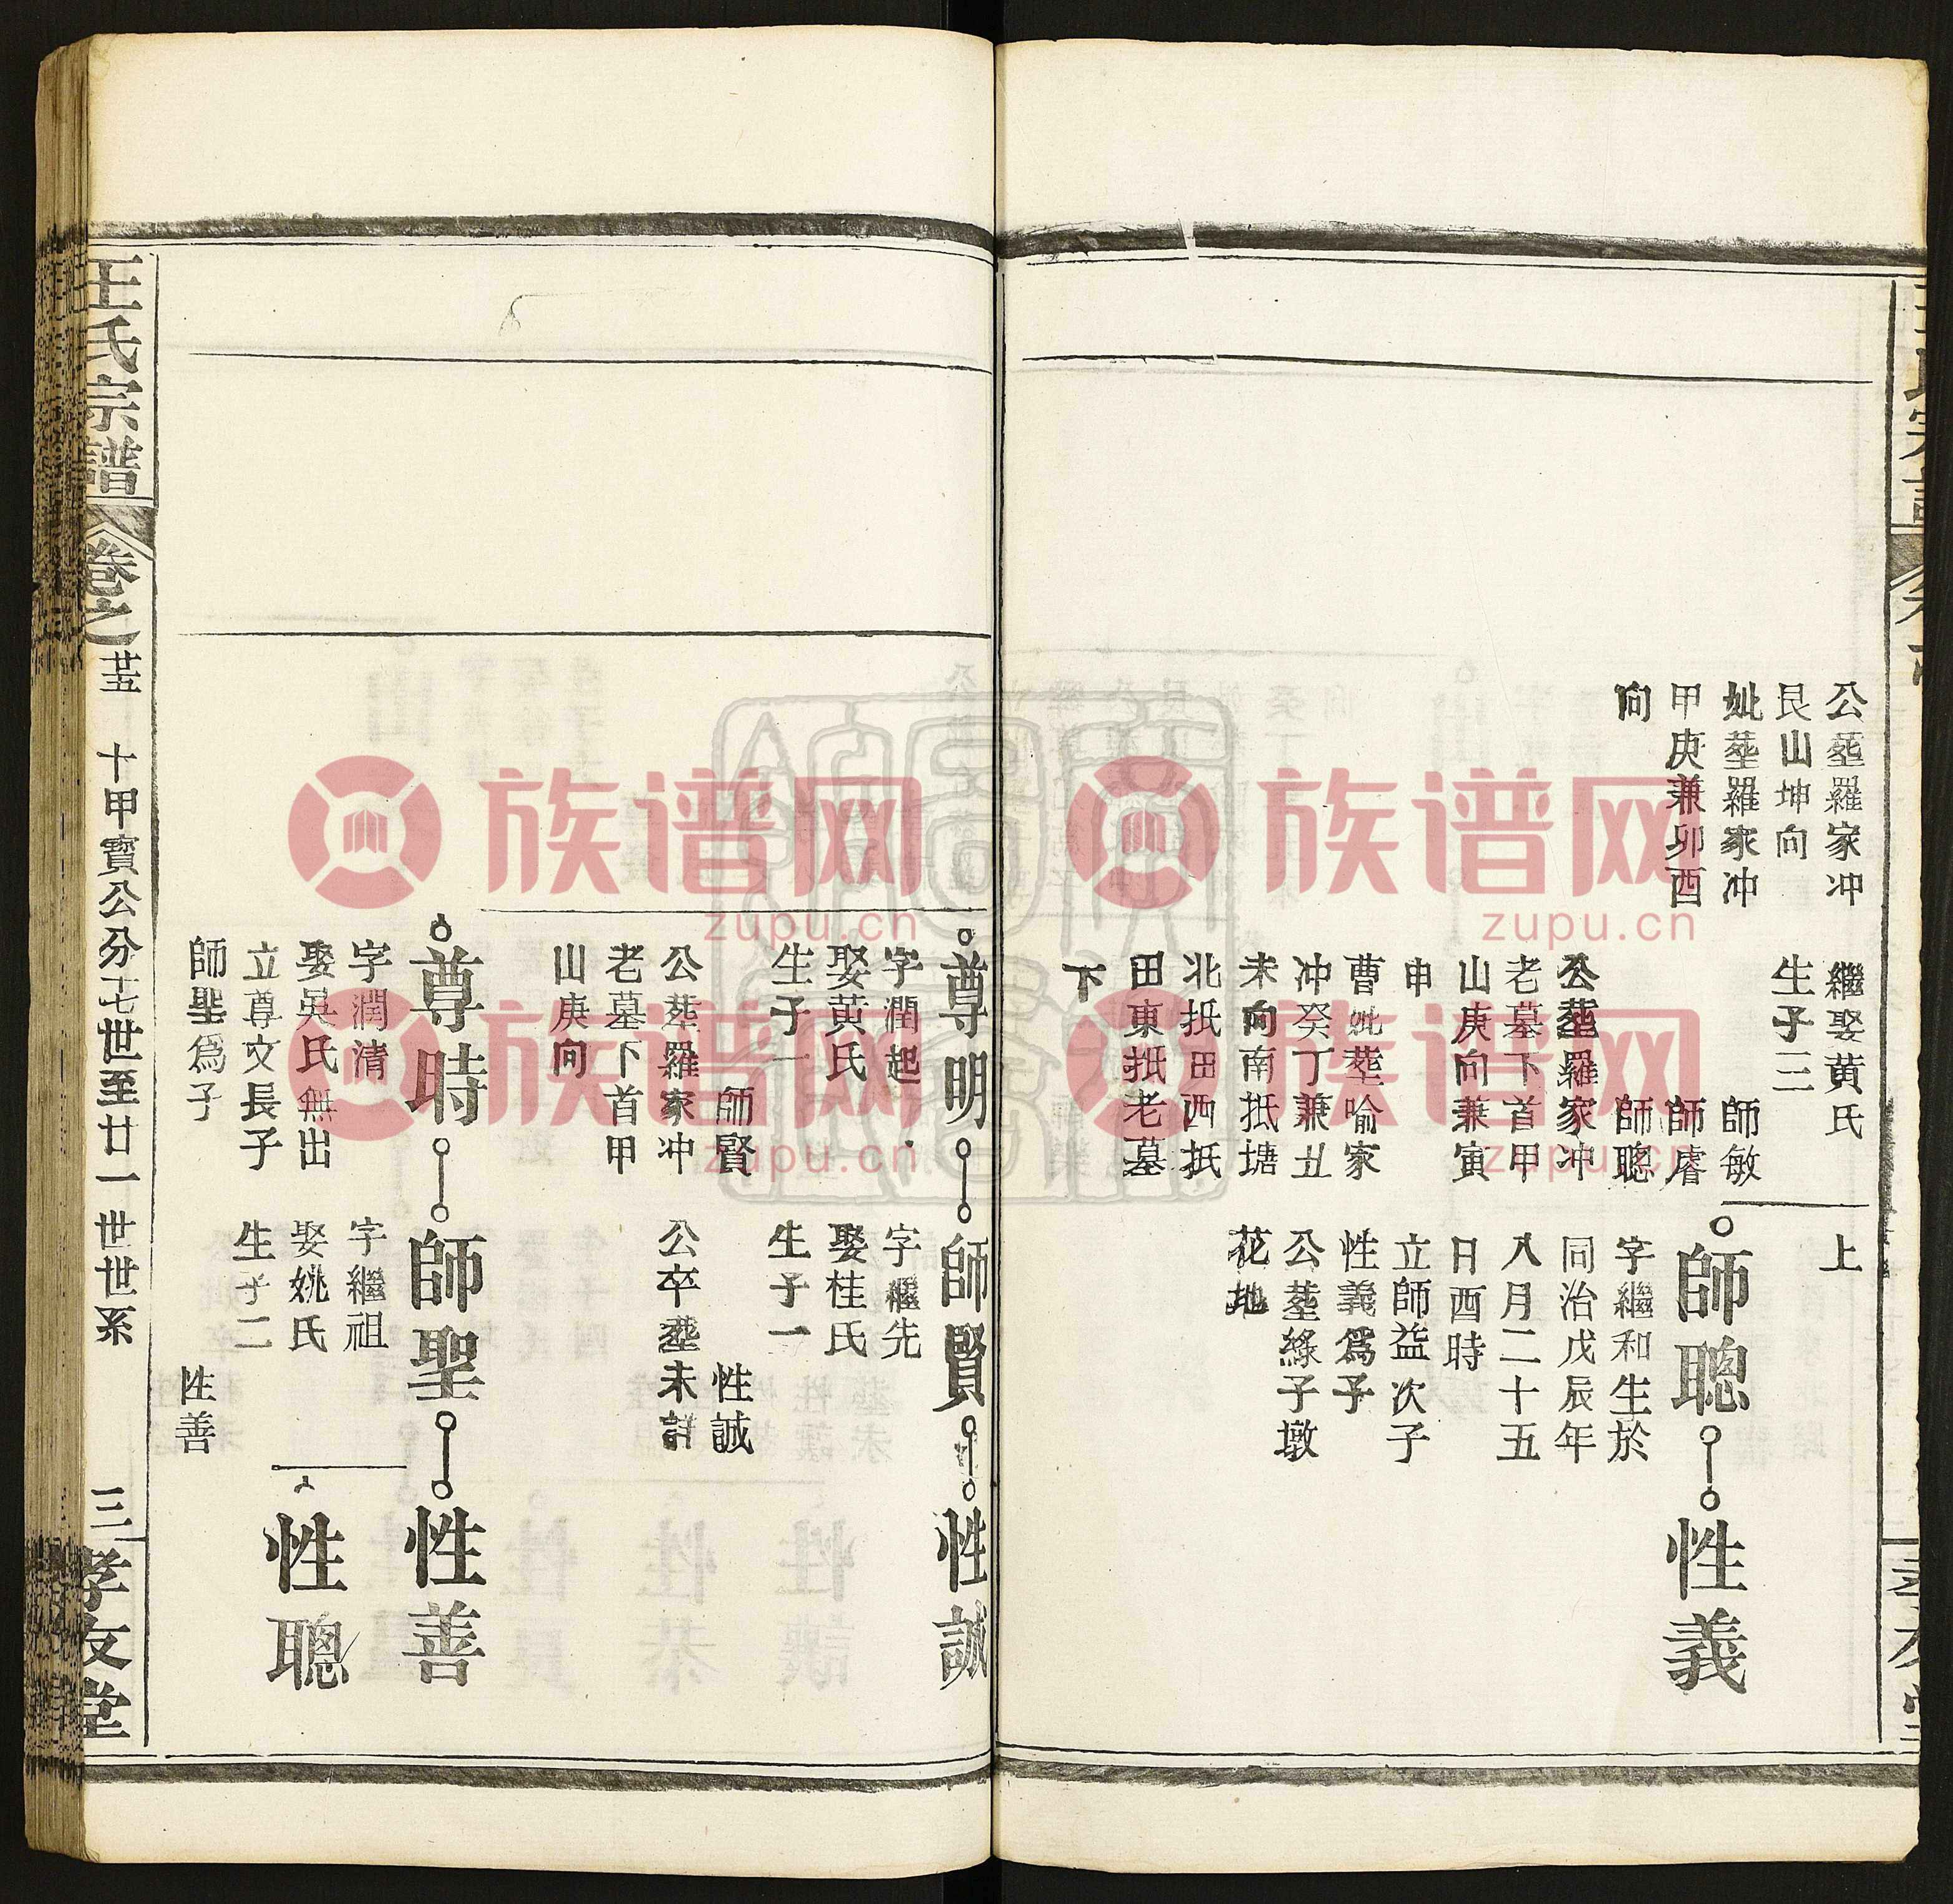 公塟羅家冲
艮山坤向
妣塟羅家冲
甲庚兼卯酉
向
繼娶黄氏
生子三
師敏
師睿
師聰
公塟羅家冲
老墓下首甲
山庚向兼寅
申
曹妣塟喻家
冲癸丁兼丑
未向南抵塘
北抵田西抵
田東抵老墓
下
上
師聰
性義
字繼和生於
同治戊辰年
八月二十五
日酉時
立師益次子
性義爲子
公塟綠子墩
花地
尊明
師賢
性誠
字潤起
娶黄氏
生子一
師賢
公塟羅家冲
老墓下首甲
山庚向
字繼先
娶桂氏
生子一
性誠
公卒塟未詳
尊時
師聖
性善
字潤清
娶吳氏無出
立尊文長子
師聖爲子
字繼祖
娶姚氏
生子二
性善
性聰
王氏宗譜
卷之廿五
十甲寶公分十七世至廿一世世系
三
孝友堂
族谱网
zupu.cn
族谱网
zupu.cn
族谱网
zupu.cn
族谱网
zupu.cn